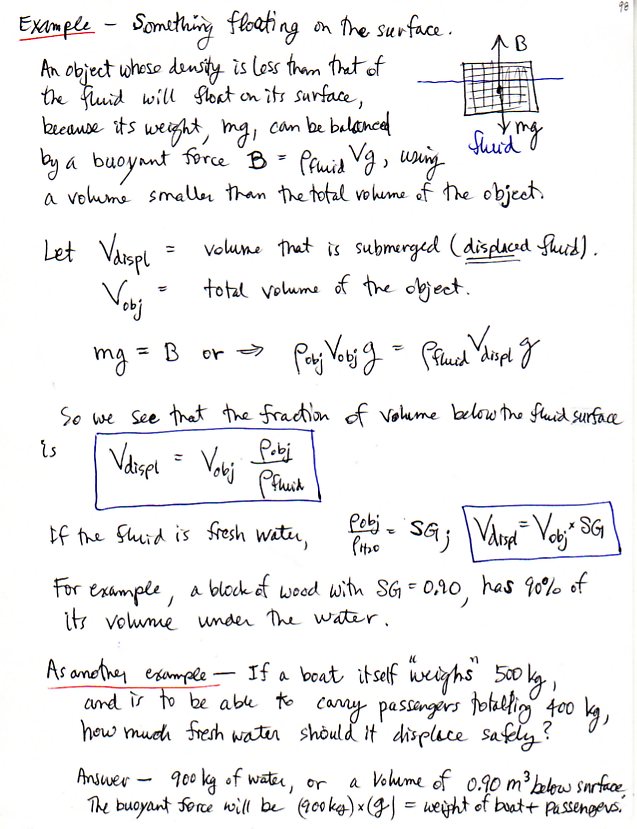 98
Example - Something floating on the surface.
B
An object whose density is less than that of
the fluid will float on its surface,
because its weight, mg, can be balanced
mg
fluid
by a buoyant force B = ρfluid Vg, using
a volume smaller than the total volume of the object.
Let Vdispl = volume that is submerged (displaced fluid).
Vobj = total volume of the object.
mg = B or ⇒ ρobj Vobj g = ρfluid Vdispl g
So we see that the fraction of volume below the fluid surface
is Vdispl = Vobj ρobj/ρfluid
If the fluid is fresh water, ρobj/ρH2O = SG; Vdispl = Vobj × SG
For example, a block of wood with SG = 0.90, has 90% of
its volume under the water.
As another example - If a boat itself "weighs" 500 kg,
and is to be able to carry passengers totalling 400 kg,
how much fresh water should it displace safely?
Answer - 900 kg of water, or a volume of 0.90 m³ below surface.
The buoyant force will be (900 kg) × (g) = weight of boat + passengers.